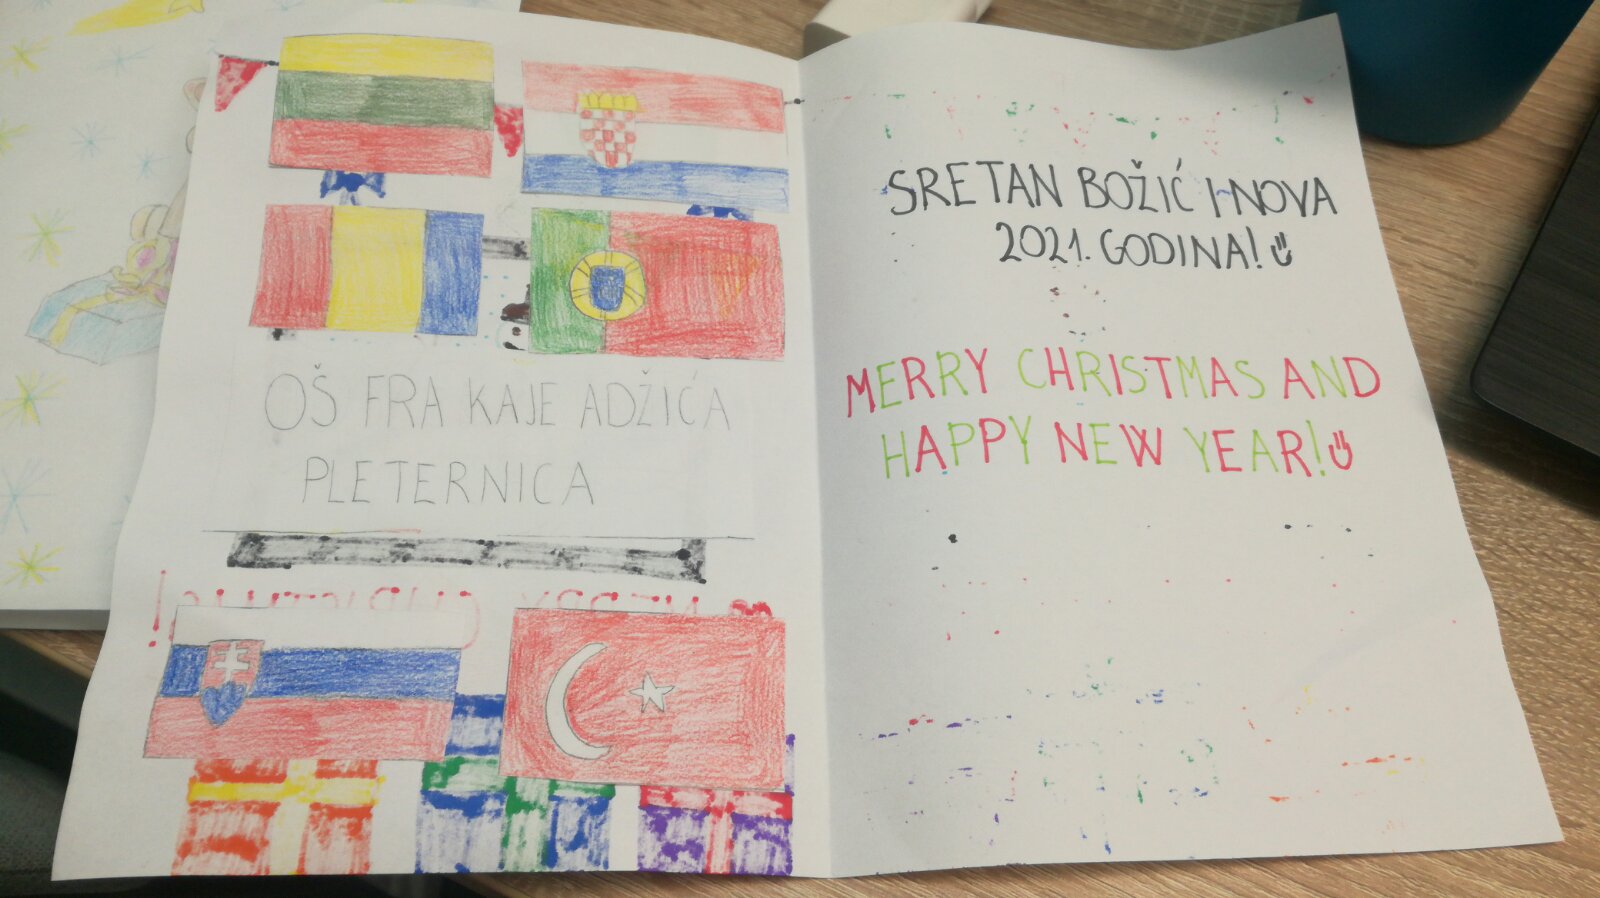 OŠ FRA KAJE ADŽIĆA
PLETERNICA
SRETAN BOŽIĆ I NOVA
2021. GODINA!
MERRY CHRISTMAS AND
HAPPY NEW YEAR!